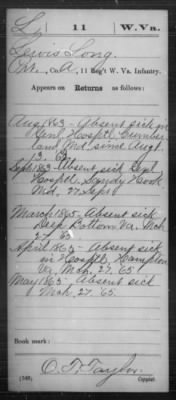 L | 11 | W. Va.
Lewis Long.
Pvt., Co. A, 11 Reg't W. Va. Infantry.
Appears on Returns as follows:
Aug 1863 - Absent sick in
Genl Hosptl Cumber-
land Md. since Augt
13, 63.
Sept 1863 - Absent sick Genl
Hosptl, Sandy Hook
Md. 27 Sept
March 1865 - Absent sick
Deep Bottom Va. Mch
27. 65
April 1865 - Absent sick
in Hosptl, Hampton
Va. Mch. 27, '65
May 1865 - Absent sick
Mch. 27. '65.
Book mark:
O. F. Taylor.
(546) Copyist.